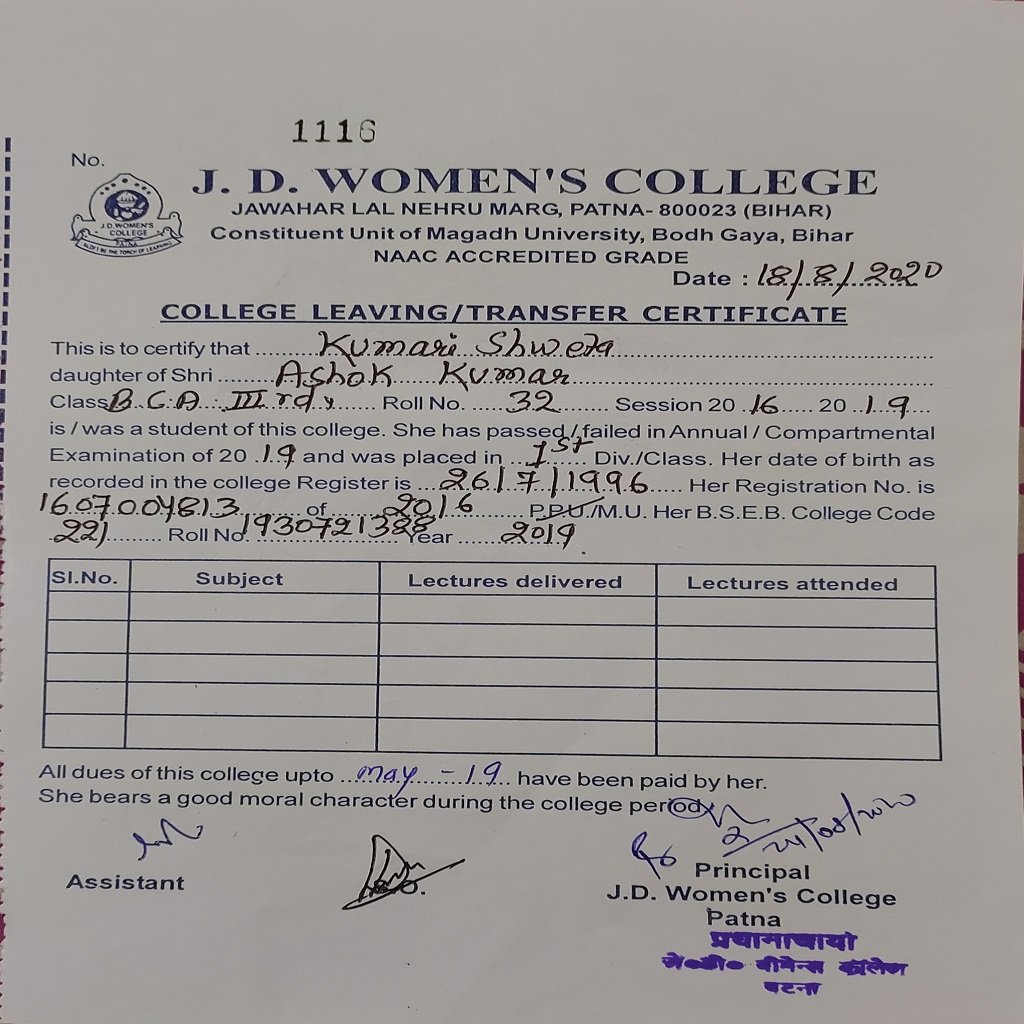 1116
No.
J.D. WOMEN'S COLLEGE PATNA
J. D. WOMEN'S COLLEGE
JAWAHAR LAL NEHRU MARG, PATNA- 800023 (BIHAR)
Constituent Unit of Magadh University, Bodh Gaya, Bihar
NAAC ACCREDITED GRADE
Date : 18/8/2020
COLLEGE LEAVING/TRANSFER CERTIFICATE
This is to certify that Kumari Shweta
daughter of Shri Ashok Kumar
Class B.C.A. III rd Roll No. 32 Session 20 16 20 19
is / was a student of this college. She has passed / failed in Annual / Compartmental
Examination of 20 19 and was placed in 1st Div./Class. Her date of birth as
recorded in the college Register is 26/7/1996 Her Registration No. is
1607004813 of 2016 P.P.U./M.U. Her B.S.E.B. College Code
221 Roll No. 1930721388 Year 2019
Sl.No. Subject Lectures delivered Lectures attended
All dues of this college upto may - 19 have been paid by her.
She bears a good moral character during the college period
Assistant
Principal
J.D. Women's College
Patna
प्रधानाचार्या
जे०डी० वीमेन्स कॉलेज
पटना